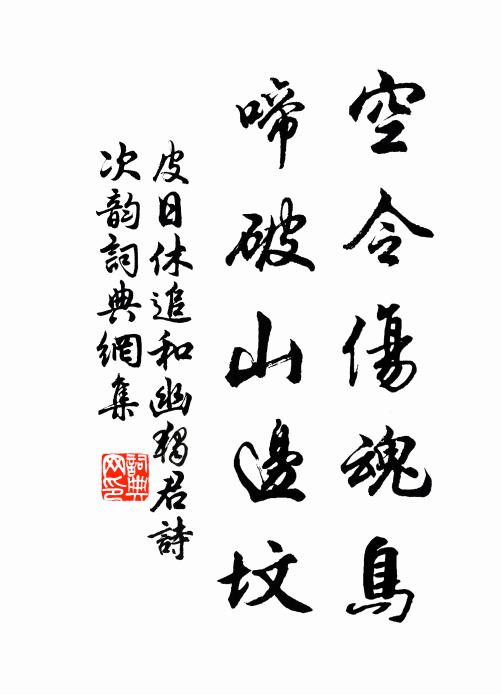 空令傷魂鳥
啼破山邊墳
皮日休追和幽獨君詩
次韵詞典網集
詞典
网印